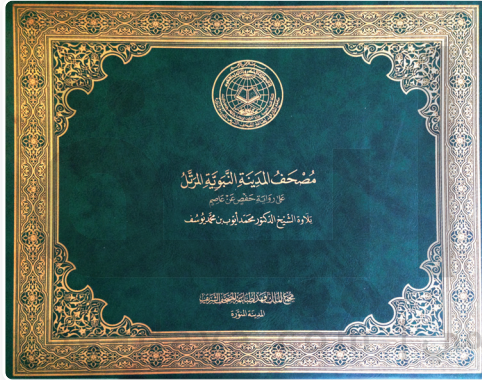 مُصْحَفُ المَدِينَةِ النَّبَوِيَّةِ المُرَتَّلُ
عَلَى رِوَايَةِ حَفْصٍ عَنْ عَاصِمٍ
بتلاوة الشيخ الدكتور محمد أيوب بن محمد يوسف
مجمع الملك فهد لطباعة المصحف الشريف
المدينة المنورة